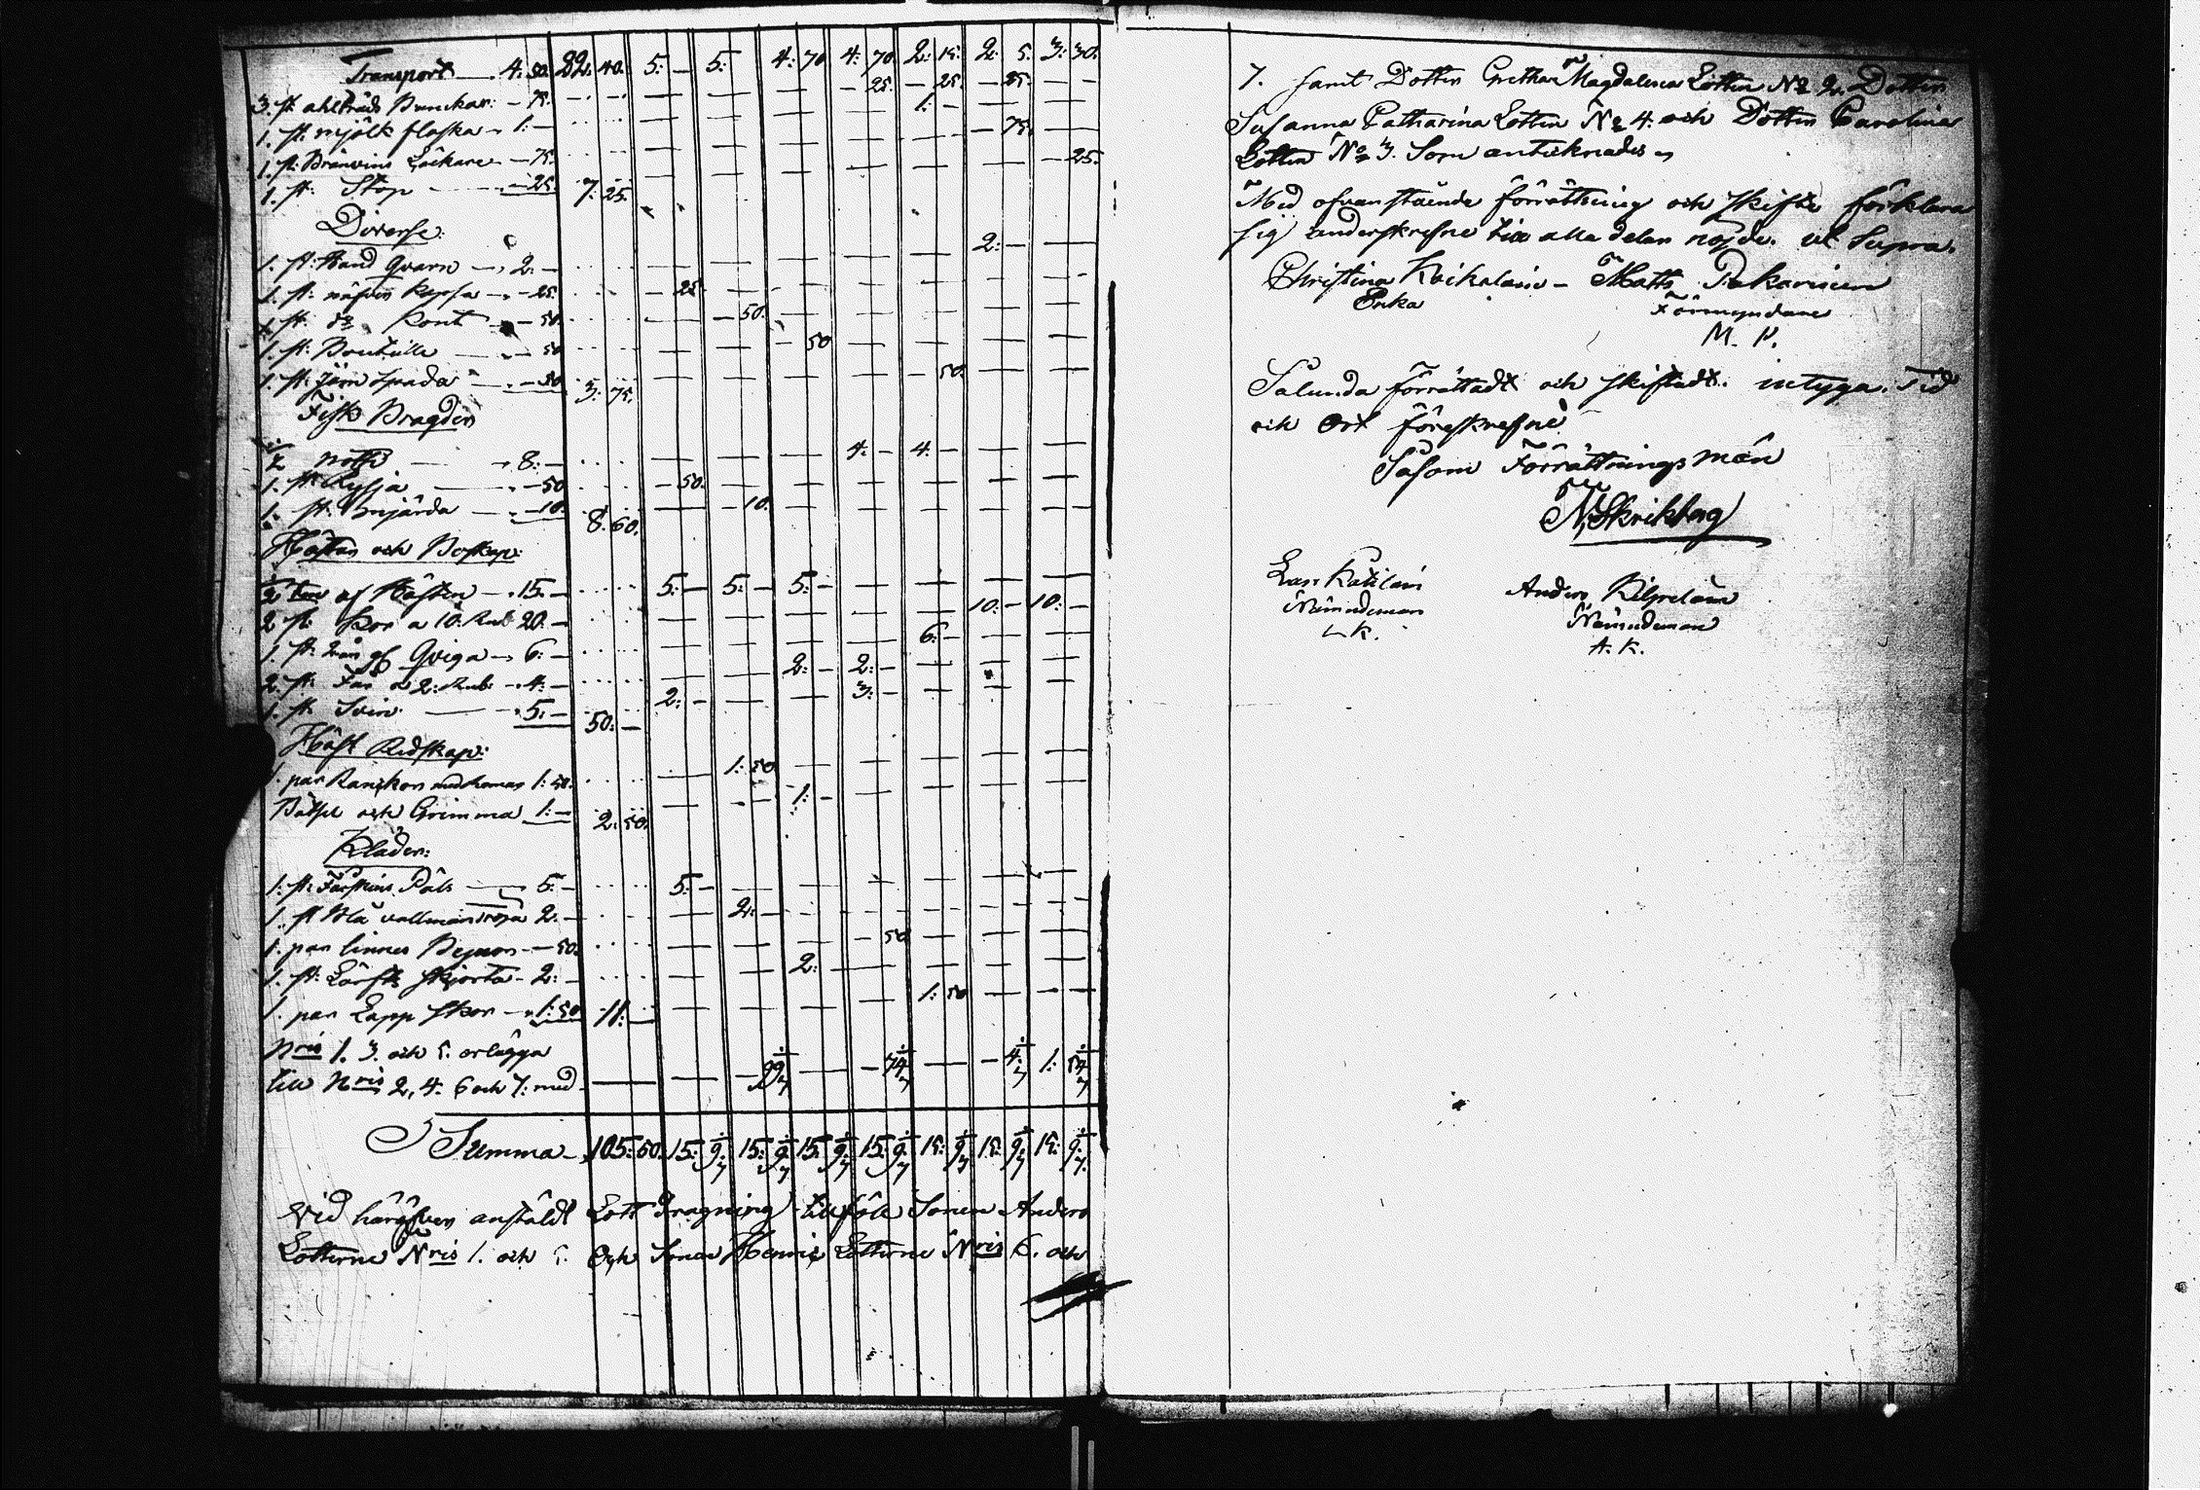 Transport — 4: 50. 22: 40. 5: — 5: 4: 70 4: 70. 2: 15. 2: 5. 3: 30.
3. st. ahlträds Bunckar: — 75. — 25. — 25. — 25. — —
1. st. mjölk flaska — 1: — 1: —
1. st. Bränvins Läckare — 75. — 75.
1. st. Stop — — 25. 7: 25. — 25.
Diverse:
1. st. Hand Qvarn — 2. — 2: —
1. st. näfvers — 25. — 25.
1. st. do Kont — 50. — 50.
1. st. Boutelle — — 50 50
1. st. Järn Spada — — 50. 3: 75. 50.
Fisk Bragder
nott — 8: — 4: — 4. —
1. st. Rysja — — 50 — 50.
1. st. mjärda — — 10. 8: 60. — 10.
Hästar och Boskap:
af Hästen — 15. — 5: — 5: — 5: —
2 st. Kor a 10. Rub 20. — 10: — 10: —
1. st. Qviga — 6: — 6: —
2. st. Får a 2: Rub. — 4: — 2: — 2: —
1. st. Svin — 5: — 50: — 2: — 3: —
Häst Redskap:
1. par Rankor med 1: 50. 1: 50
Bätsel och Grimma 1: — 2: 50. 1: —
Kläder:
1. st. Fårskins Päls — 5: — 5: —
1. st. Blå vallmans tröja 2. — 2: —
1. par linnes Byxor — 50. — 50
1. st. Lärfts Skjorta — 2: — 2: —
1. par Lapp Skor — 1: 50 11: — 1: 50
Nris 1. 3. och 5. erlägga
till Nris 2, 4. 6 och 7: med — 1:
Summa — 105: 50. 15: 15: 15: 15: 15: 15: 15:
Vid häröfver anstäldt Lott dragning tillföll Sonen Anders
Lotterne Nris 1. och 5. Och Sonen Henric Lotterne Nris 6. och
7. samt Dottren Gretha Magdalena Lotten No 2. Dottren
Susanna Catharina Lotten No 4: och Dottren Carolina
Lotten No 3. Som antecknades
Med ofvanstående förrättning och skifte förklara
sig underskrefne till alla delar nöjde. ut Supra.
Christina — Matts Pakarinen
Enka Förmyndare
M. P.
Sålunda förrättadt och skiftadt. intyga. Tid
och Ort föreskrefne
Såsom Förrättnings män
N. Skrikberg
Lars Anders Kilpeläin
Nämndeman Nämndeman
L. K. A. K.